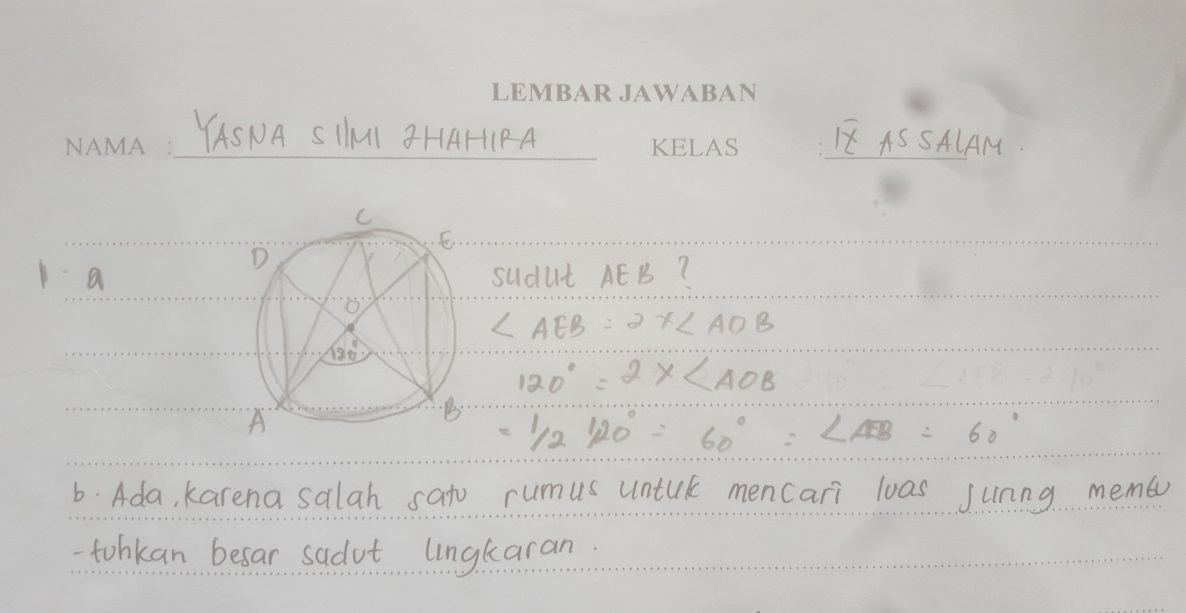 LEMBAR JAWABAN
NAMA : YASNA SILMI ZHAHIRA KELAS : IX AS SALAM.
C
D E
1. a sudut AEB ?
O
∠ AEB = 2 × ∠ AOB
120°
120° = 2 × ∠AOB
A B
= 1/2 120° = 60° = ∠AEB = 60°
b. Ada, karena salah satu rumus untuk mencari luas juring membu
-tuhkan besar sudut lingkaran.